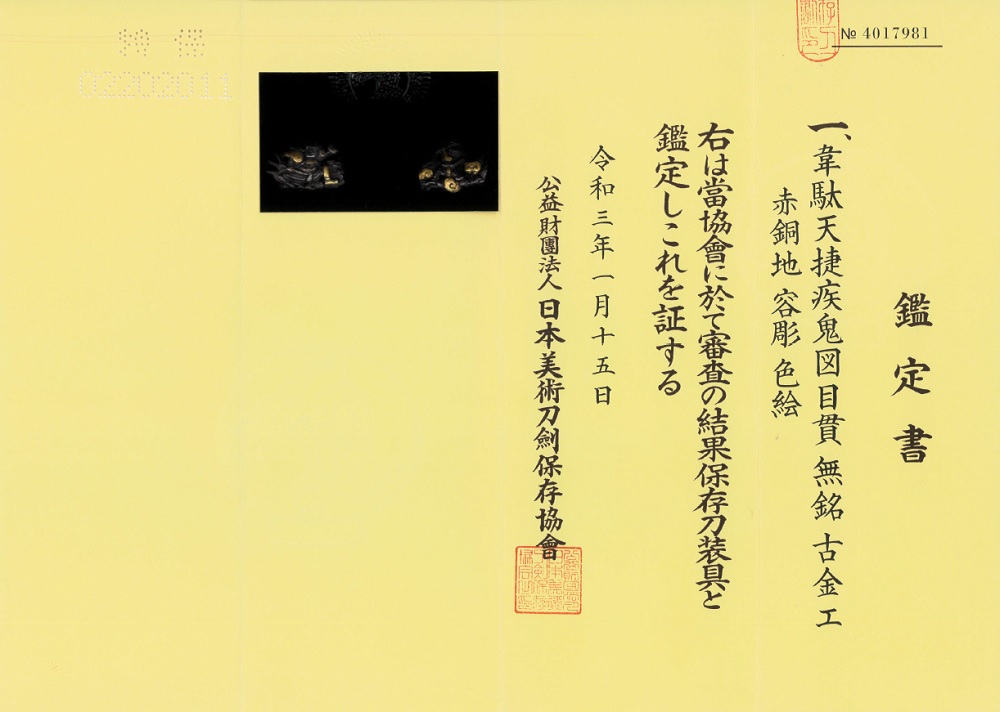 № 4017981
鑑定書
一、韋駄天捷疾鬼図目貫 無銘 古金工
赤銅地 容彫 色絵
右は當協會に於て審査の結果保存刀装具と
鑑定しこれを証する
令和三年一月十五日
公益財團法人 日本美術刀劍保存協會
02202011